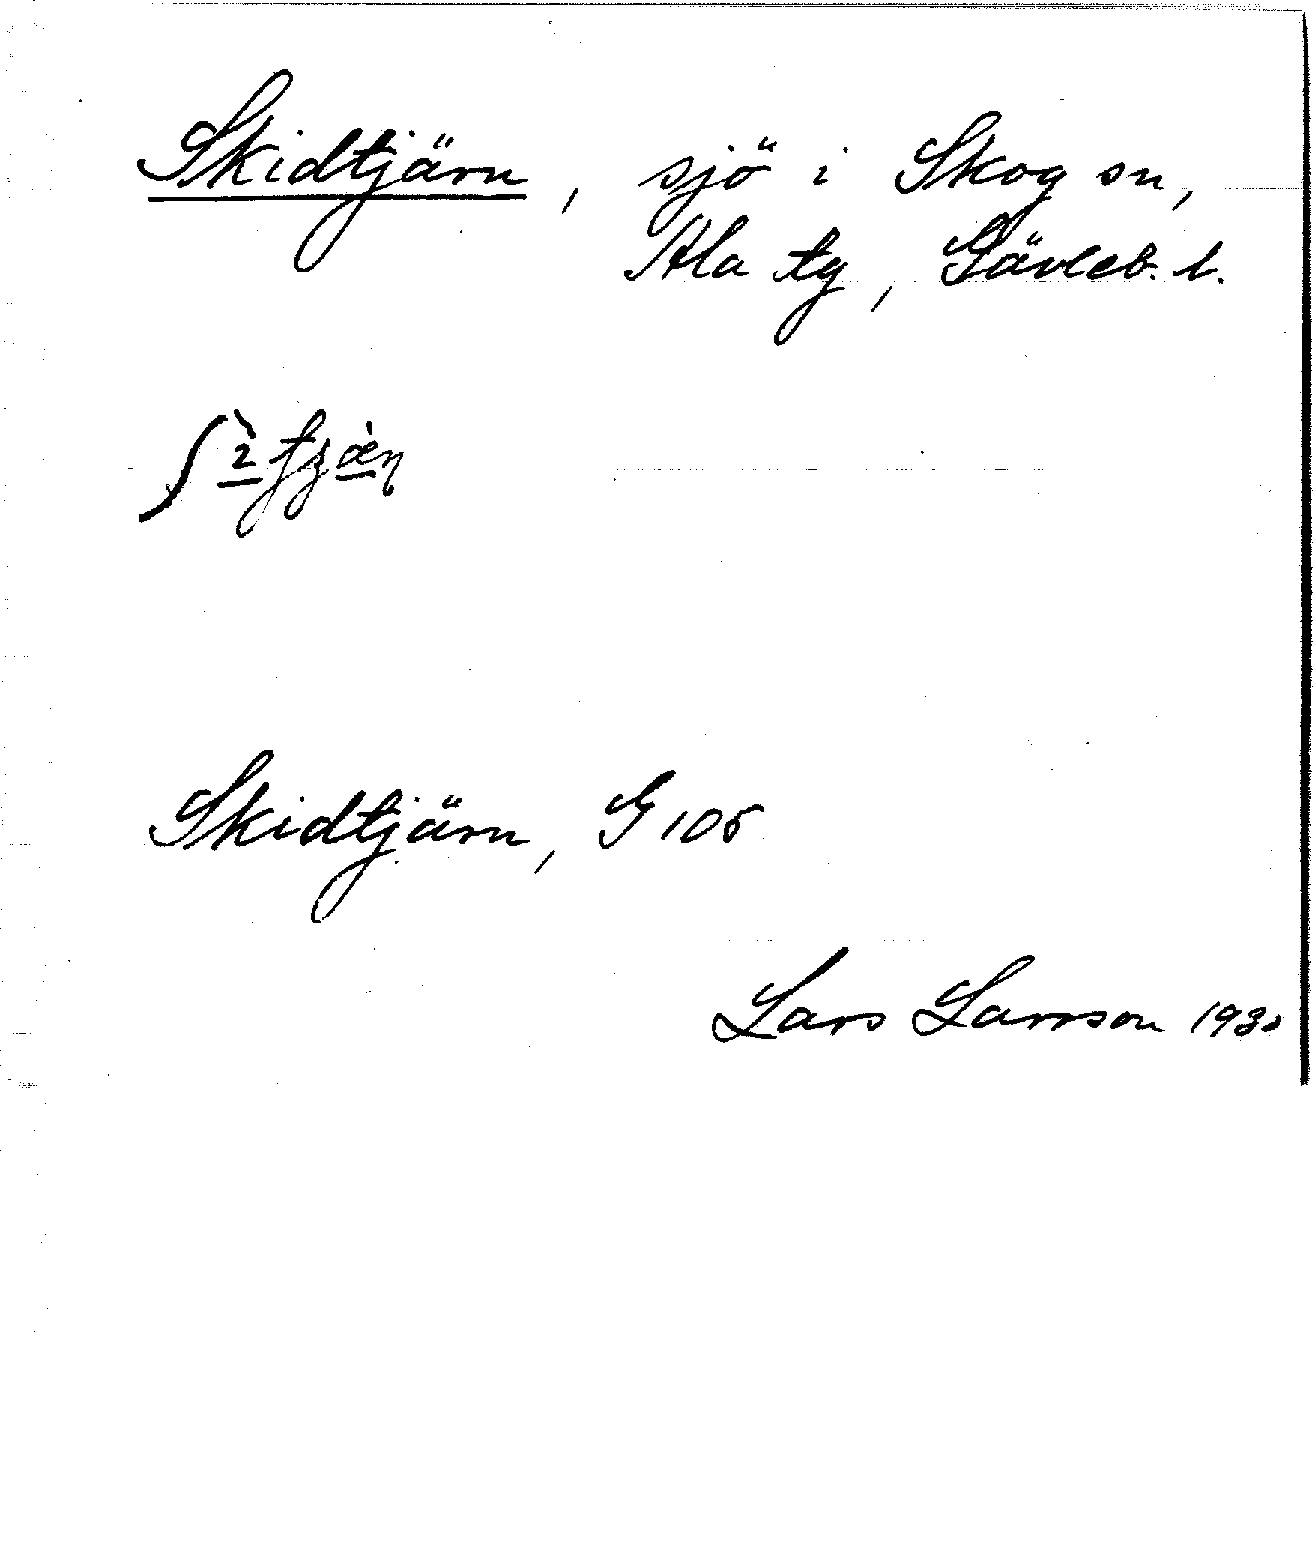 Skidtjärn, sjö i Skog sn,
Ala tg, Gävleb. l.
Skidtjärn, G 105
Lars Larsson 1930